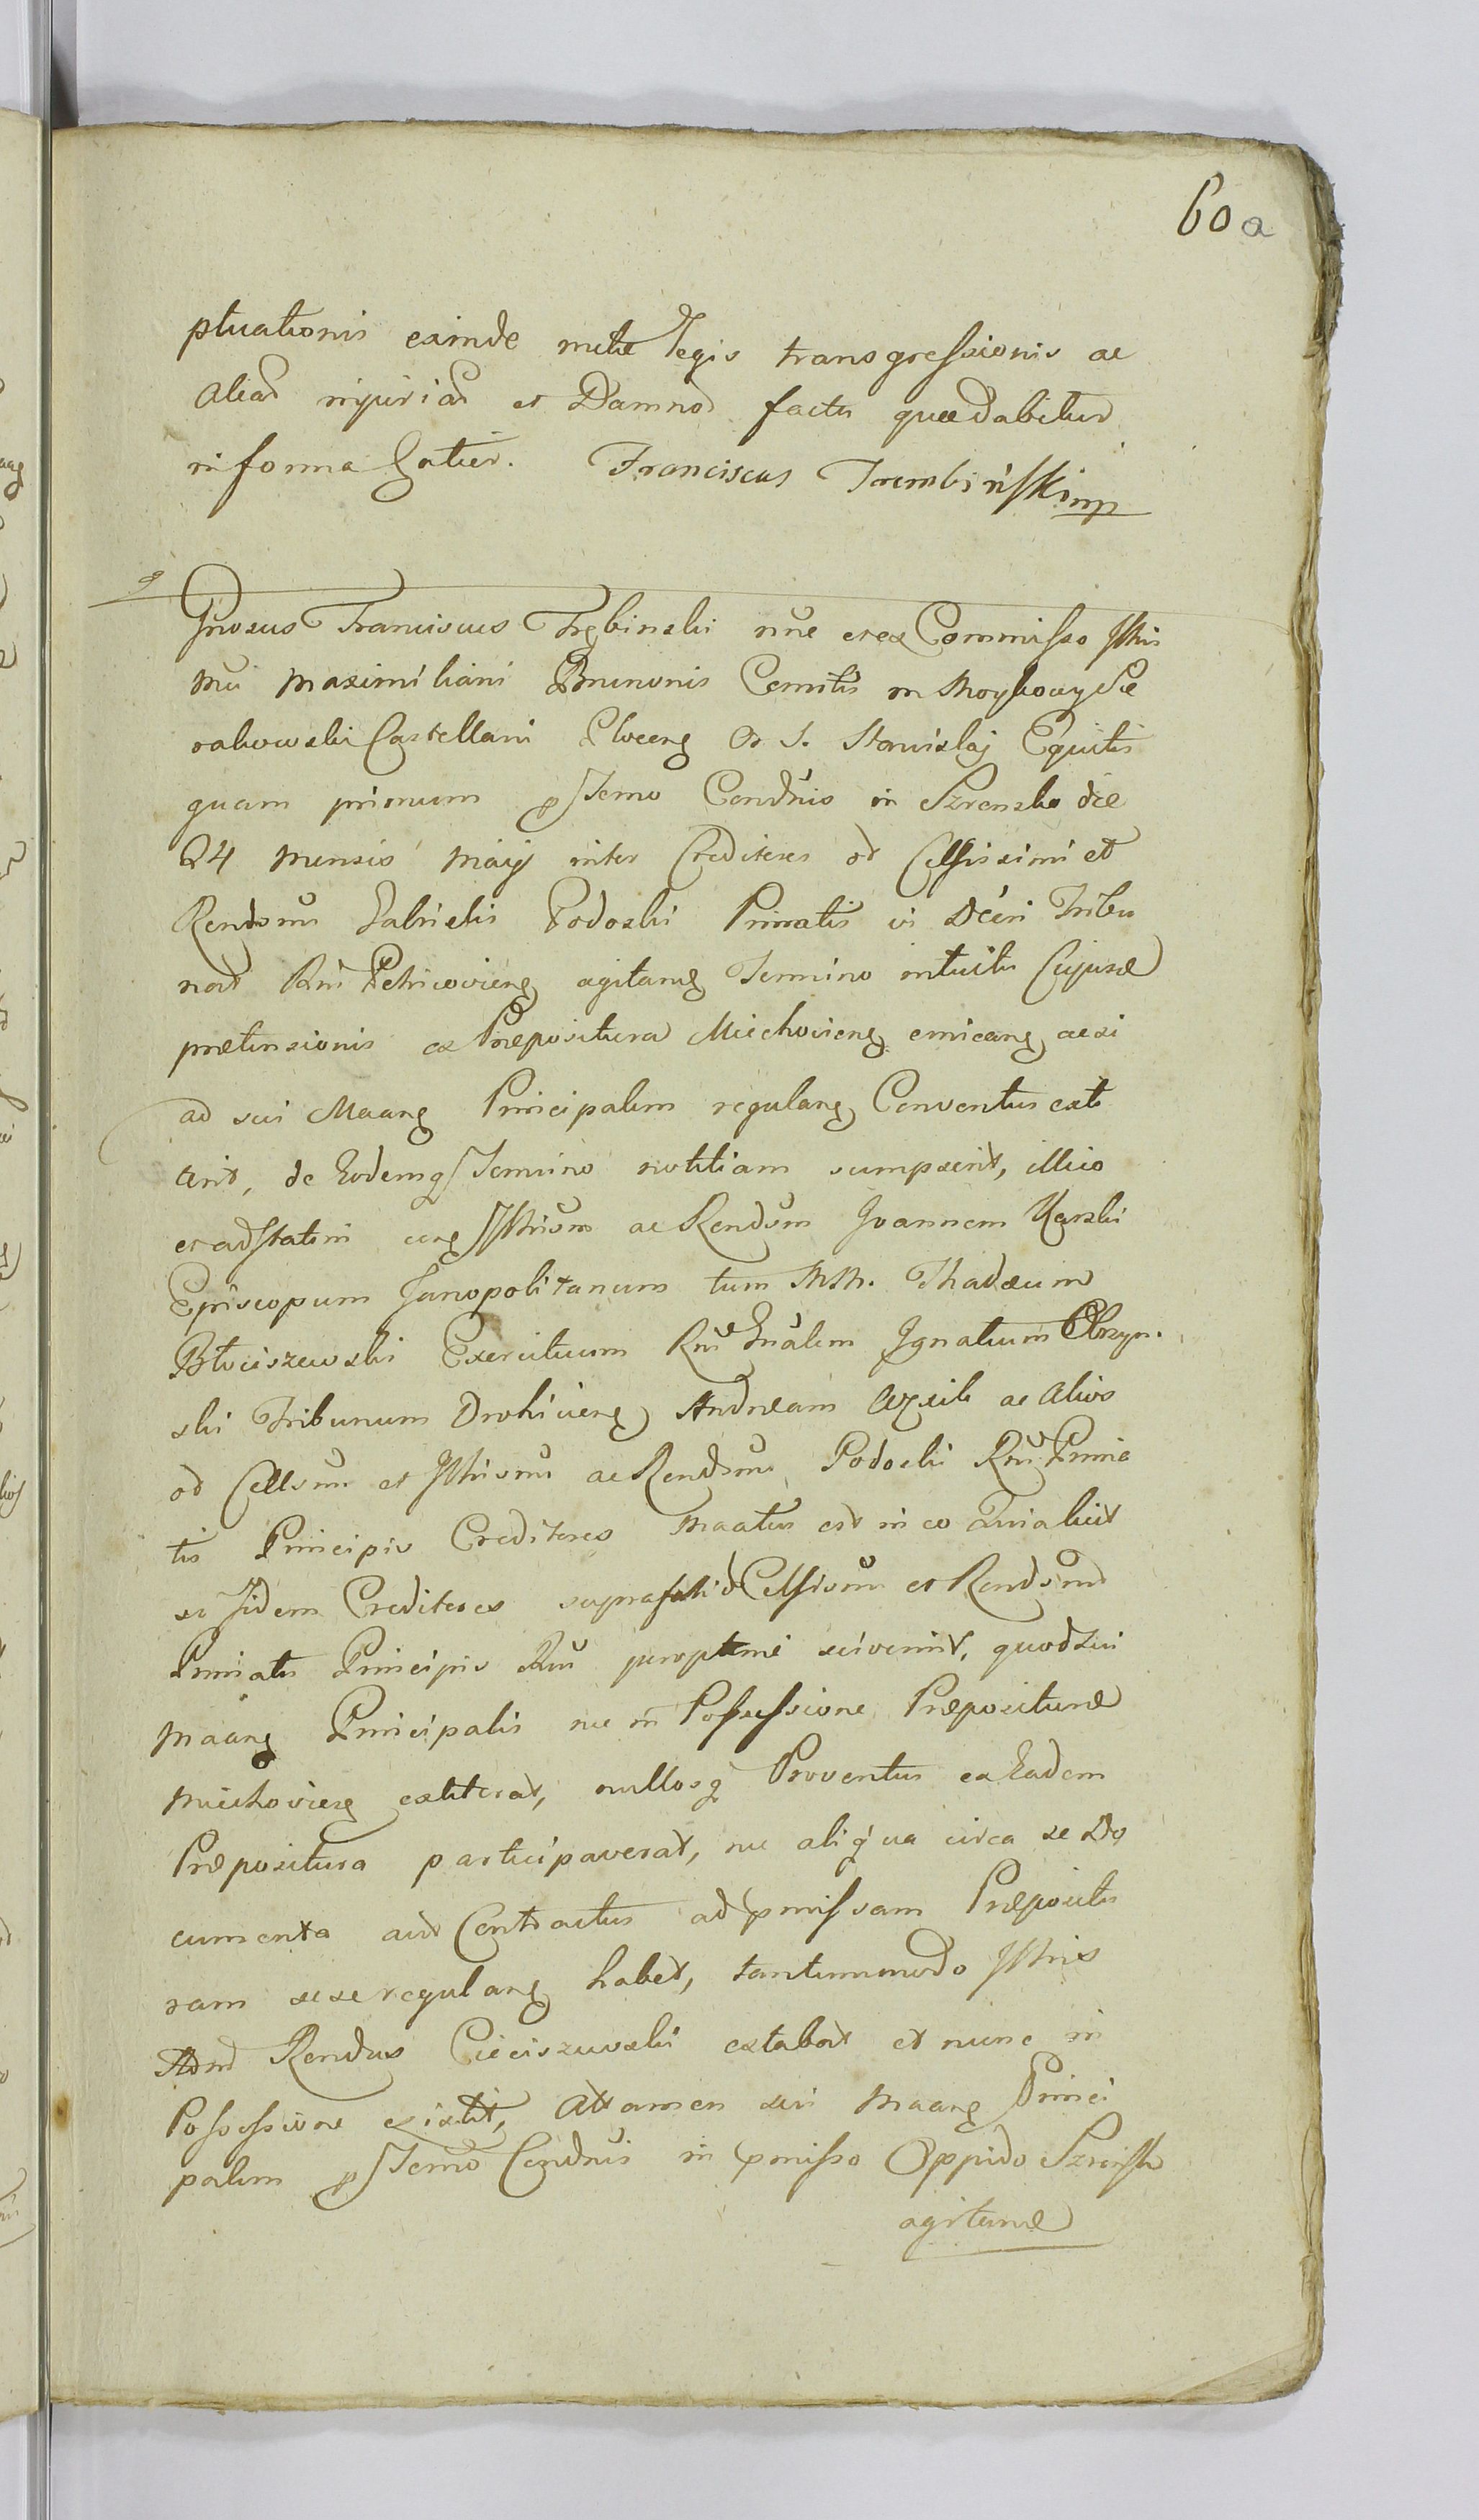 60 a
ptuationis exinde metu Legis transgressionis ac
aliar injuriar et Damnor factu quae dabitur
in forma Latier. Franciscus Trembińskimp
Gnosus Franciscus Trębinski nne et ex Commisso Illris
mi Maximiliani Brunonis Comitis in
rakowski Castellani Or S. Stanislaj Equitis
quam primum p Termo Condnis in Szrensko die
24 mensis maij inter Creditores od Celsissimi et
Rendsmi Gabrielis Podoski Primatis vi Dcii Tribu
nal Rni Petricovieng agitang Termino intuitu Cujusd
praetensionis ex Praepositura Miechovieng emicang acsi
ad sui Maang Principalem regulang Conventus exti
terit, de Eodemq Termino notitiam sumpserit, illico
et adstatim Illrium ac Rendum Joannem Karski
Episcopum Janopolitanum tum MM. Thadaeum
Błociszewski Exercituum Rni Gnalem Ignatium
ski Tribunum Drohicieng Andream ac alios
od Cellsmi et Illrismi ac Rendsmi Podoski Rni Prima
tis Principis Creditores Maatus est in eo Quialicit
se Jidem Creditores suprafati Celsismi et Rendsmi
Primatis Principis Rni peroptime sciverint, quod sui
Maang Principalis nec in Possessione Praepositurae
Miechovieng extiterat, nullosq Proventus ex Eadem
Praepositura participaverat, nec aliqua circa se Do
cumenta aut Contractus ad pmissam Praepositu
ram sese regulang habet, tantummodo Illris
Adm Rendus Cieciszewski extabat et nunc in
Possessione existit, Attamen sui Maang Princi
palem p Termo Condnis in pmisso Oppido Szrensk
agiturae